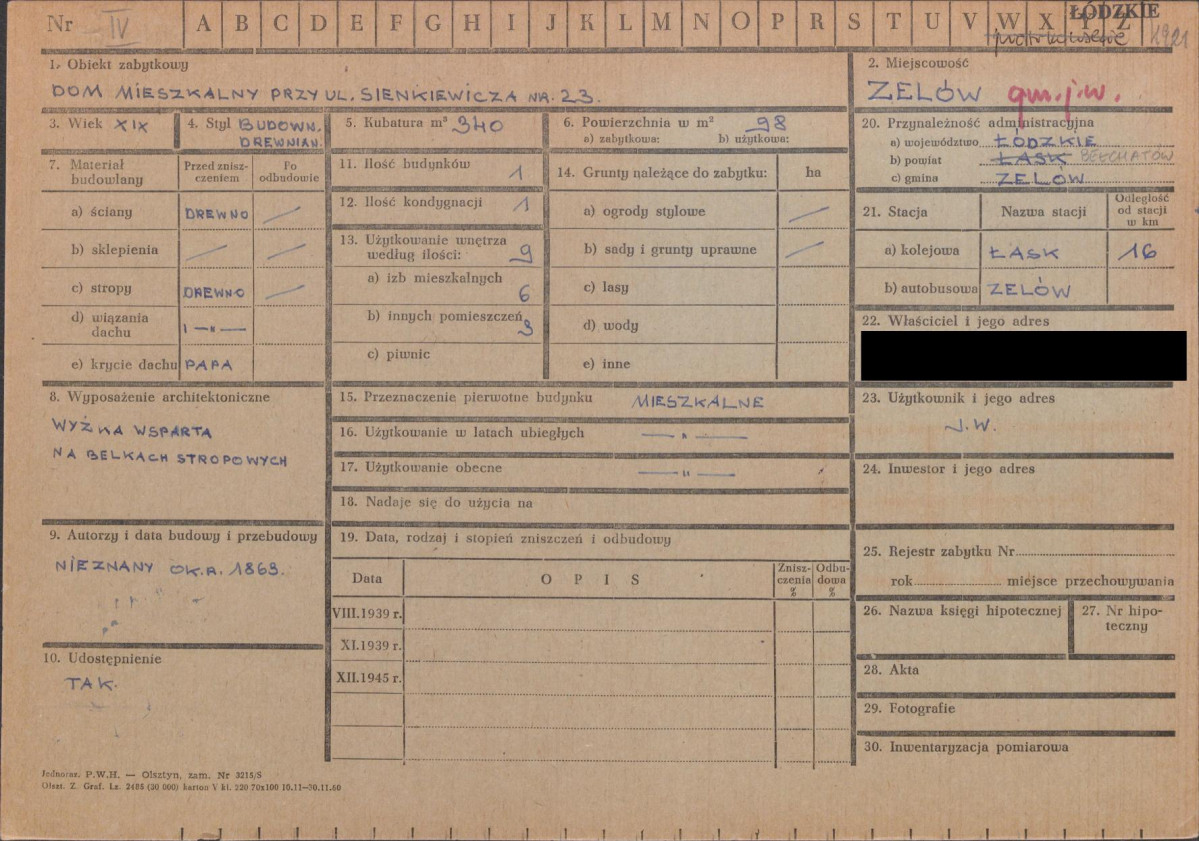 Nr IV A B C D E F G H I J K L M N O P R S T U V W X Y Z
ŁÓDZKIE
piotrkowskie 1921
1. Obiekt zabytkowy
DOM MIESZKALNY PRZY UL. SIENKIEWICZA NR. 23.
2. Miejscowość
ZELÓW gm.j.w.
3. Wiek XIX
4. Styl BUDOWN.
DREWNIAN.
5. Kubatura m³ 340
6. Powierzchnia w m² 98
a) zabytkowa: b) użytkowa:
20. Przynależność administracyjna
a) województwo ŁÓDZKIE
b) powiat ŁASK BEŁCHATÓW
c) gmina ZELÓW
7. Materiał
budowlany
Przed znisz-
czeniem
Po
odbudowie
a) ściany DREWNO /
b) sklepienia / /
c) stropy DREWNO /
d) wiązania
dachu —"—
e) krycie dachu PAPA
11. Ilość budynków 1
12. Ilość kondygnacji 1
13. Użytkowanie wnętrza
według ilości: 9
a) izb mieszkalnych
6
b) innych pomieszczeń
3
c) piwnic
14. Grunty należące do zabytku: ha
a) ogrody stylowe /
b) sady i grunty uprawne /
c) lasy
d) wody
e) inne
21. Stacja Nazwa stacji
Odległość
od stacji
w km
a) kolejowa ŁASK 16
b) autobusowa ZELÓW
22. Właściciel i jego adres
8. Wyposażenie architektoniczne
WYŻKA WSPARTA
NA BELKACH STROPOWYCH
15. Przeznaczenie pierwotne budynku MIESZKALNE
16. Użytkowanie w latach ubiegłych —"—
17. Użytkowanie obecne —"—
18. Nadaje się do użycia na
23. Użytkownik i jego adres
J.W.
24. Inwestor i jego adres
9. Autorzy i data budowy i przebudowy
NIEZNANY OK.R. 1863.
10. Udostępnienie
TAK.
19. Data, rodzaj i stopień zniszczeń i odbudowy
Data OPIS
Znisz-
czenia
%
Odbu-
dowa
%
VIII.1939 r.
XI.1939 r.
XII.1945 r.
25. Rejestr zabytku Nr
rok miejsce przechowywania
26. Nazwa księgi hipotecznej
27. Nr hipo-
teczny
28. Akta
29. Fotografie
30. Inwentaryzacja pomiarowa
Jednoraz. P.W.H. — Olsztyn, zam. Nr 3215/S
Olszt. Z. Graf. Lz. 2485 (30 000) karton V kl. 220 70x100 10.11—30.11.60